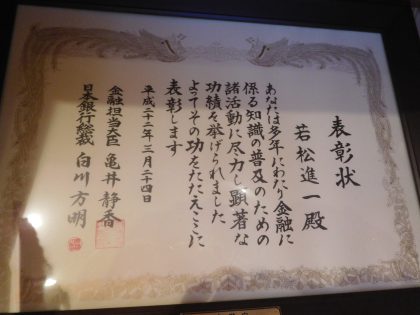 表彰状
若松進一殿
あなたは多年にわたり金融に
係る知識の普及のための
諸活動に尽力し顕著な
功績を挙げられました
よってその功をたたえここに
表彰します
平成二十二年三月二十四日
金融担当大臣 亀井静香
日本銀行総裁 白川方明